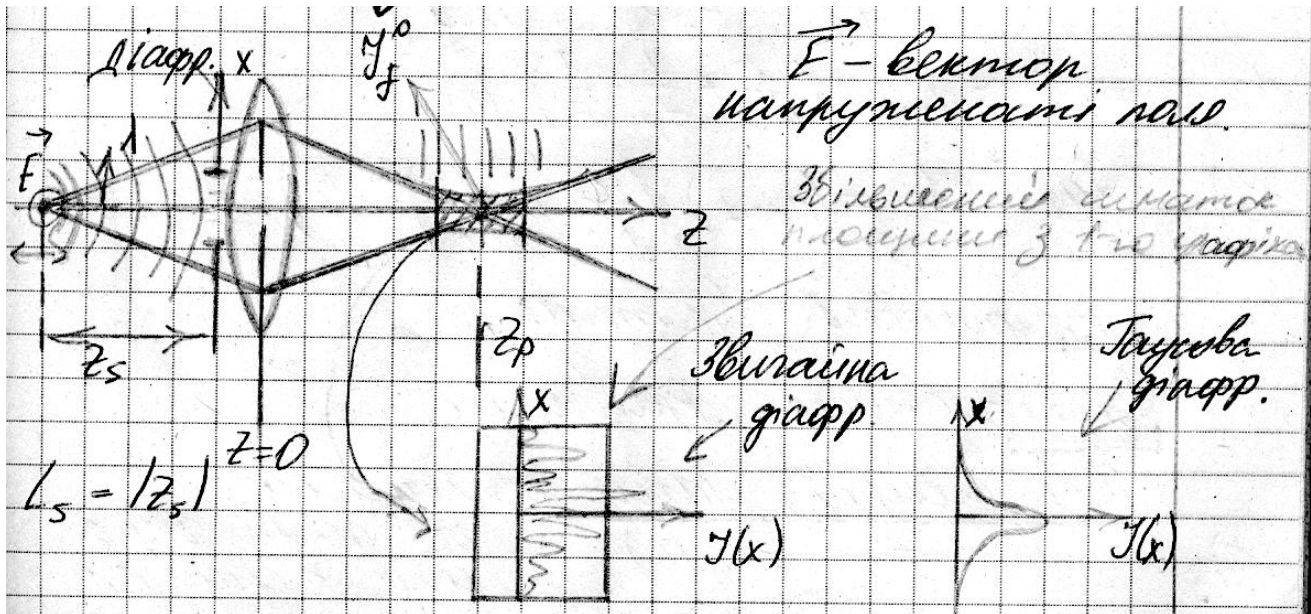 Діафр.
x
J_f^0
E⃗ – вектор
напруженості поля.
E⃗
Збільшений шматок
площини з 1-го графіка
z
z_s
z_p
z=0
L_s = |z_s|
Звичайна
діафр.
Гаусова
діафр.
x
J(x)
x
J(x)